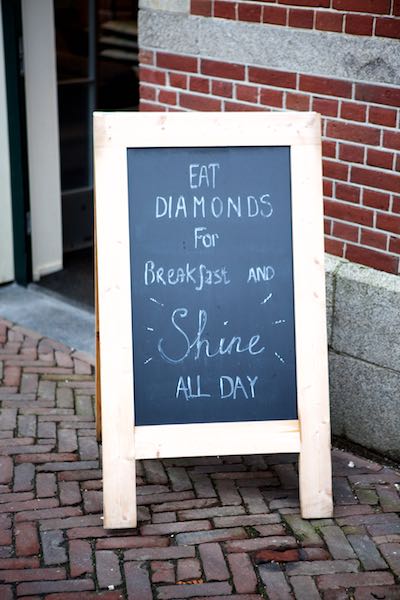 EAT
DIAMONDS
For
Breakfast AND
Shine
ALL DAY